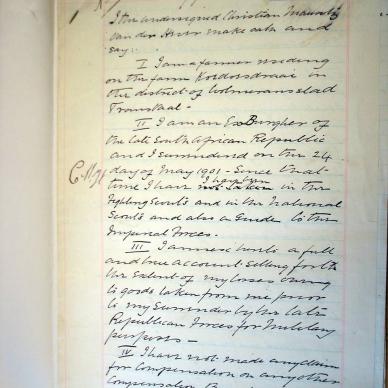 I the undersigned Christian
van der make oath and
say:-
I I am a farmer residing
on the farm in
the district of Wolmaransstad
Transvaal -
II I am an ExBurgher of
the late South African Republic
and I surrendered on the 24
day of May 1901 - Since that
time I have I have been not taken in the
Fighting Scouts and in the National
Scouts and also a Guide to the
Imperial Forces.
III I annex hereto a full
and true account setting forth
the extent of my losses owing
to goods taken from me prior
to my surrender by the late
Republican Forces for Military
purposes -
IV I have not made any claim
for Compensation on any other
Compensation